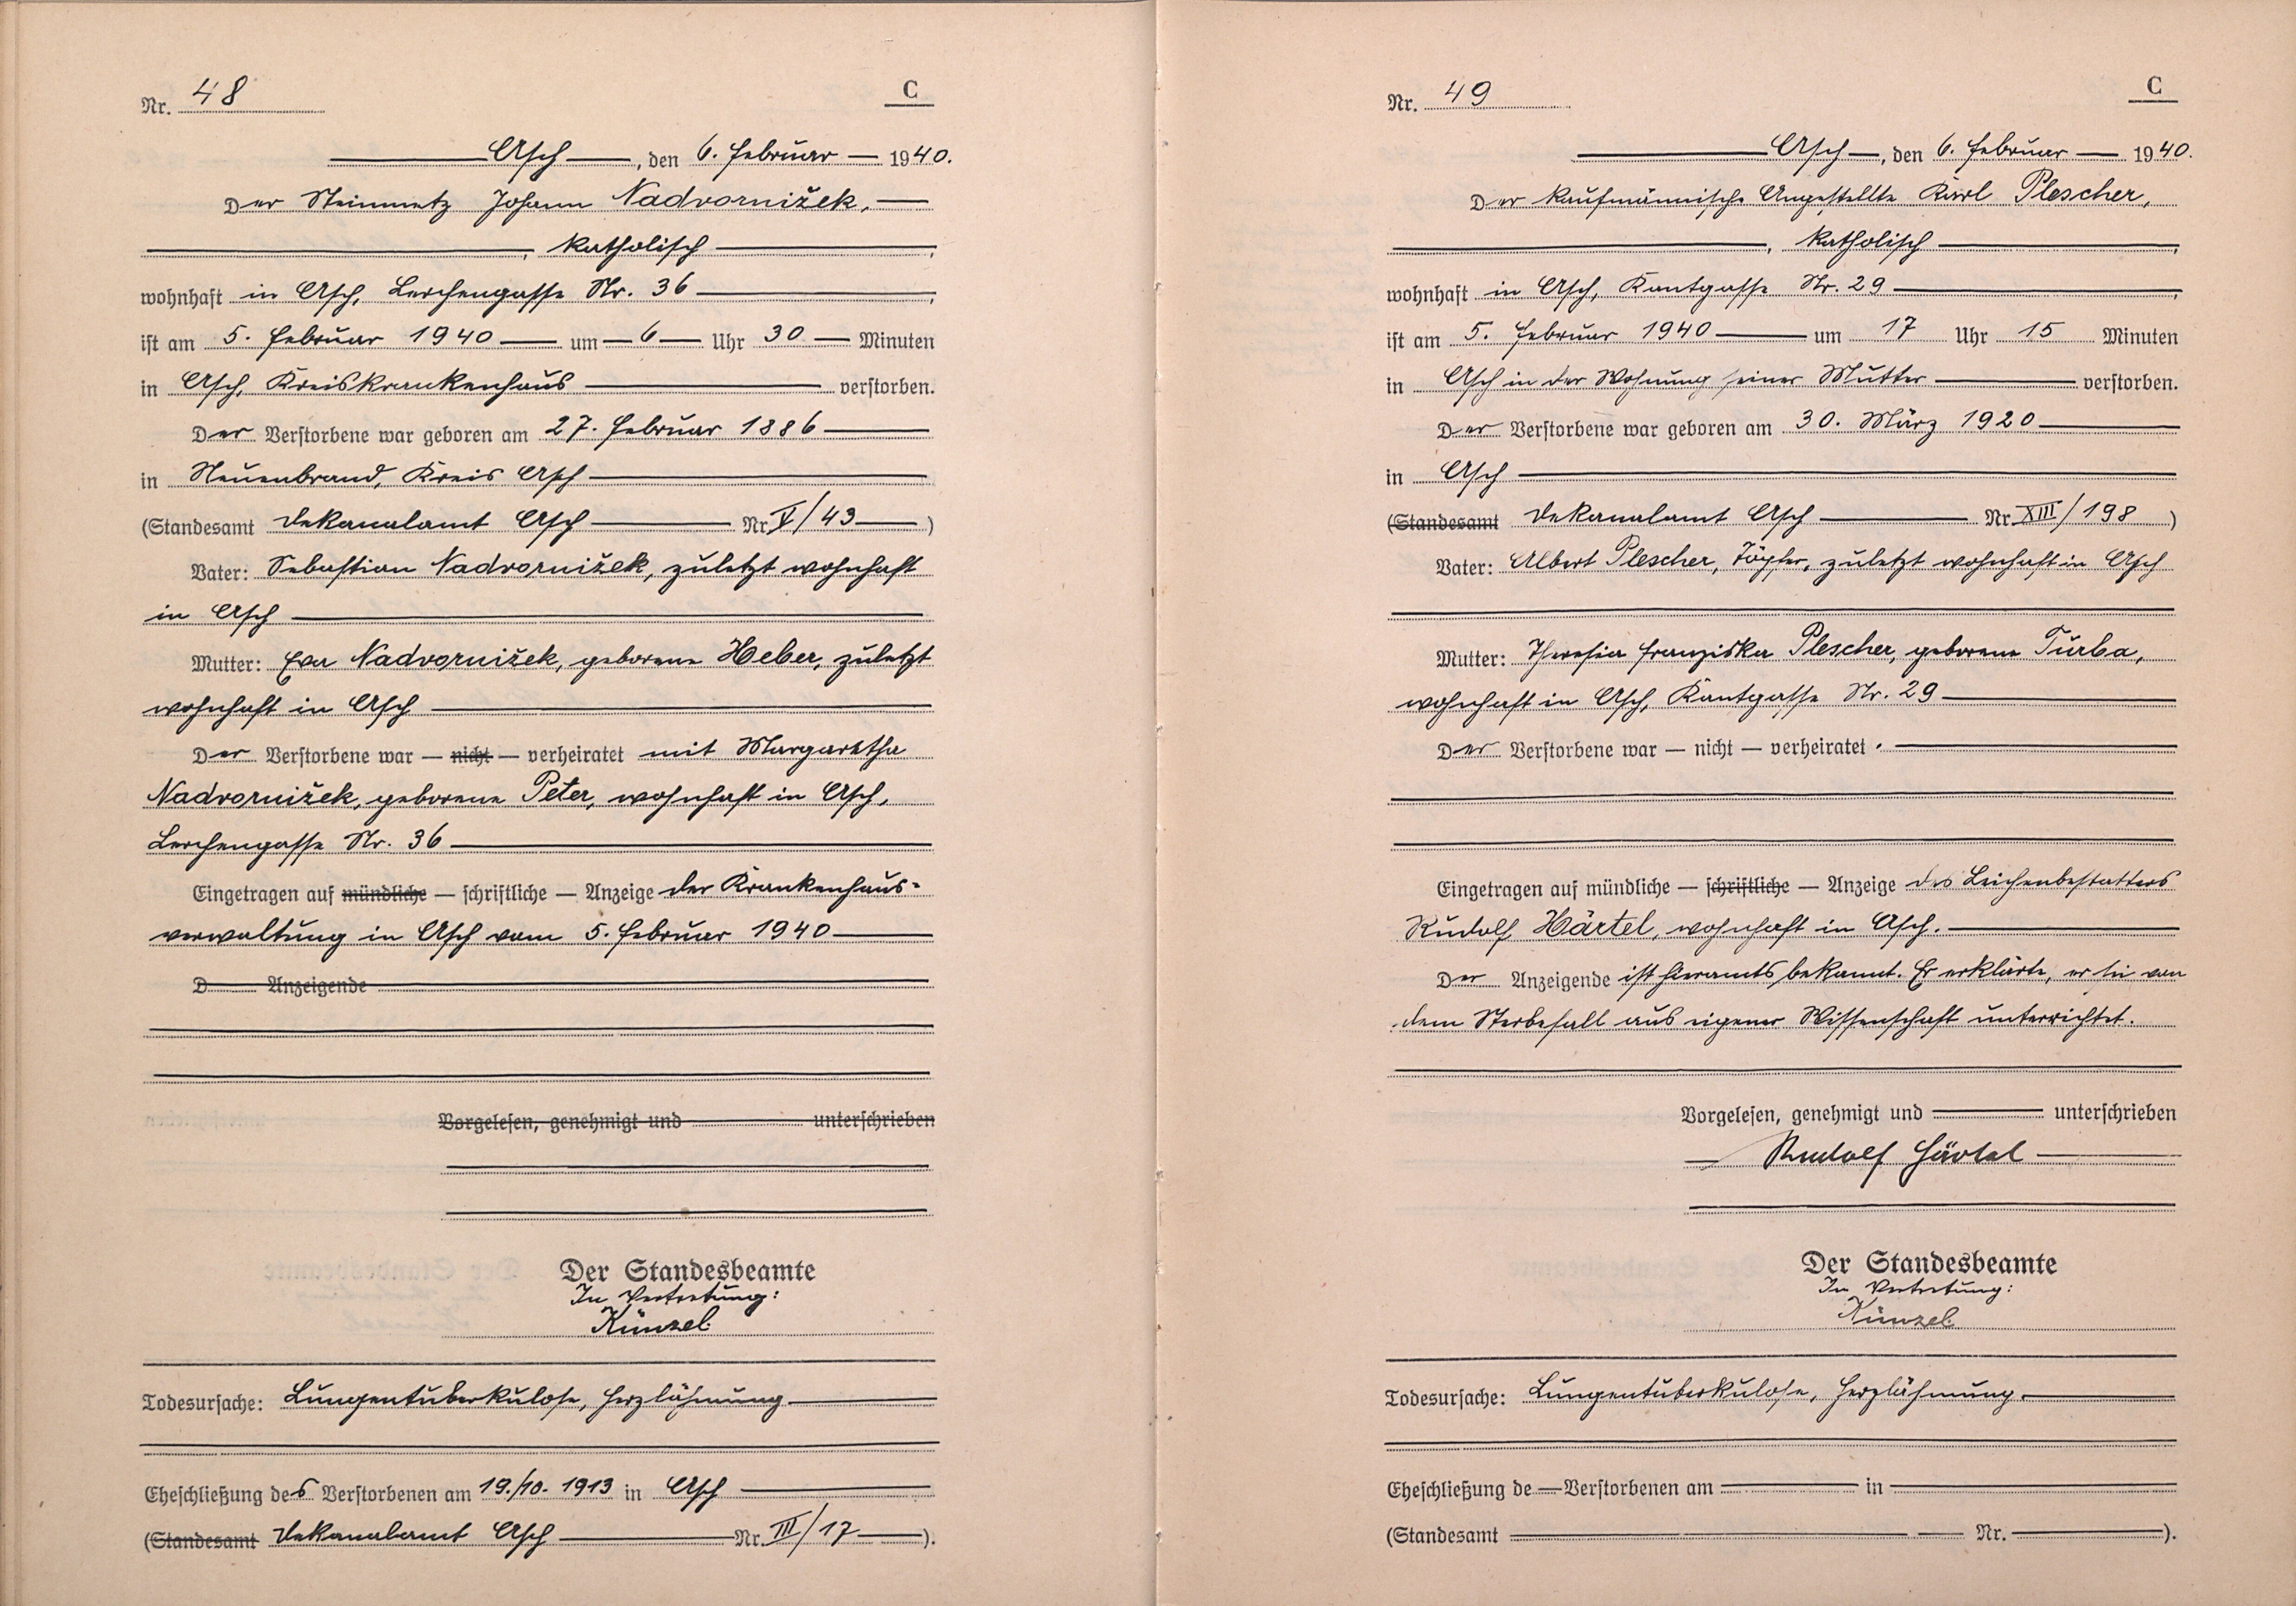 Nr. 48
C
Asch, den 6. Februar 1940.
Der Steinmetz Johann Nadvornižek,
, katholisch ,
wohnhaft in Asch, Lerchengasse Nr. 36 ,
ist am 5. Februar 1940 um 6 Uhr 30 Minuten
in Asch, Kreiskrankenhaus verstorben.
Der Verstorbene war geboren am 27. Februar 1886
in Neuenbrand, Kreis Asch
(Standesamt Dekanalamt Asch Nr. V/43 )
Vater: Sebastian Nadvornižek, zuletzt wohnhaft
in Asch
Mutter: Eva Nadvornižek, geborene Heber, zuletzt
wohnhaft in Asch
Der Verstorbene war — nicht — verheiratet mit Margaretha
Nadvornižek, geborene Peter, wohnhaft in Asch,
Lerchengasse Nr. 36
Eingetragen auf mündliche — schriftliche — Anzeige der Krankenhaus-
verwaltung in Asch vom 5. Februar 1940
D Anzeigende
Vorgelesen, genehmigt und unterschrieben
Der Standesbeamte
In Vertretung:
Künzel
Todesursache: Lungentuberkulose, Herzlähmung
Eheschließung des Verstorbenen am 19./10. 1913 in Asch
(Standesamt Dekanalamt Asch Nr. III/17 ).
Nr. 49
C
Asch, den 6. Februar 1940.
Der kaufmännische Angestellte Karl Plescher,
, katholisch ,
wohnhaft in Asch, Kantgasse Nr. 29 ,
ist am 5. Februar 1940 um 17 Uhr 15 Minuten
in Asch in der Wohnung seiner Mutter verstorben.
Der Verstorbene war geboren am 30. März 1920
in Asch
(Standesamt Dekanalamt Asch Nr. XIII/198 )
Vater: Albert Plescher, Töpfer, zuletzt wohnhaft in Asch
Mutter: Theresia Franziska Plescher, geborene Turba,
wohnhaft in Asch, Kantgasse Nr. 29
Der Verstorbene war — nicht — verheiratet.
Eingetragen auf mündliche — schriftliche — Anzeige des Leichenbestatters
Rudolf Härtel, wohnhaft in Asch.
Der Anzeigende ist hieramts bekannt. Er erklärte, er sei von
dem Sterbefall aus eigener Wissenschaft unterrichtet.
Vorgelesen, genehmigt und unterschrieben
Rudolf Härtel
Der Standesbeamte
In Vertretung:
Künzel
Todesursache: Lungentuberkulose, Herzlähmung.
Eheschließung de Verstorbenen am in
(Standesamt Nr. ).